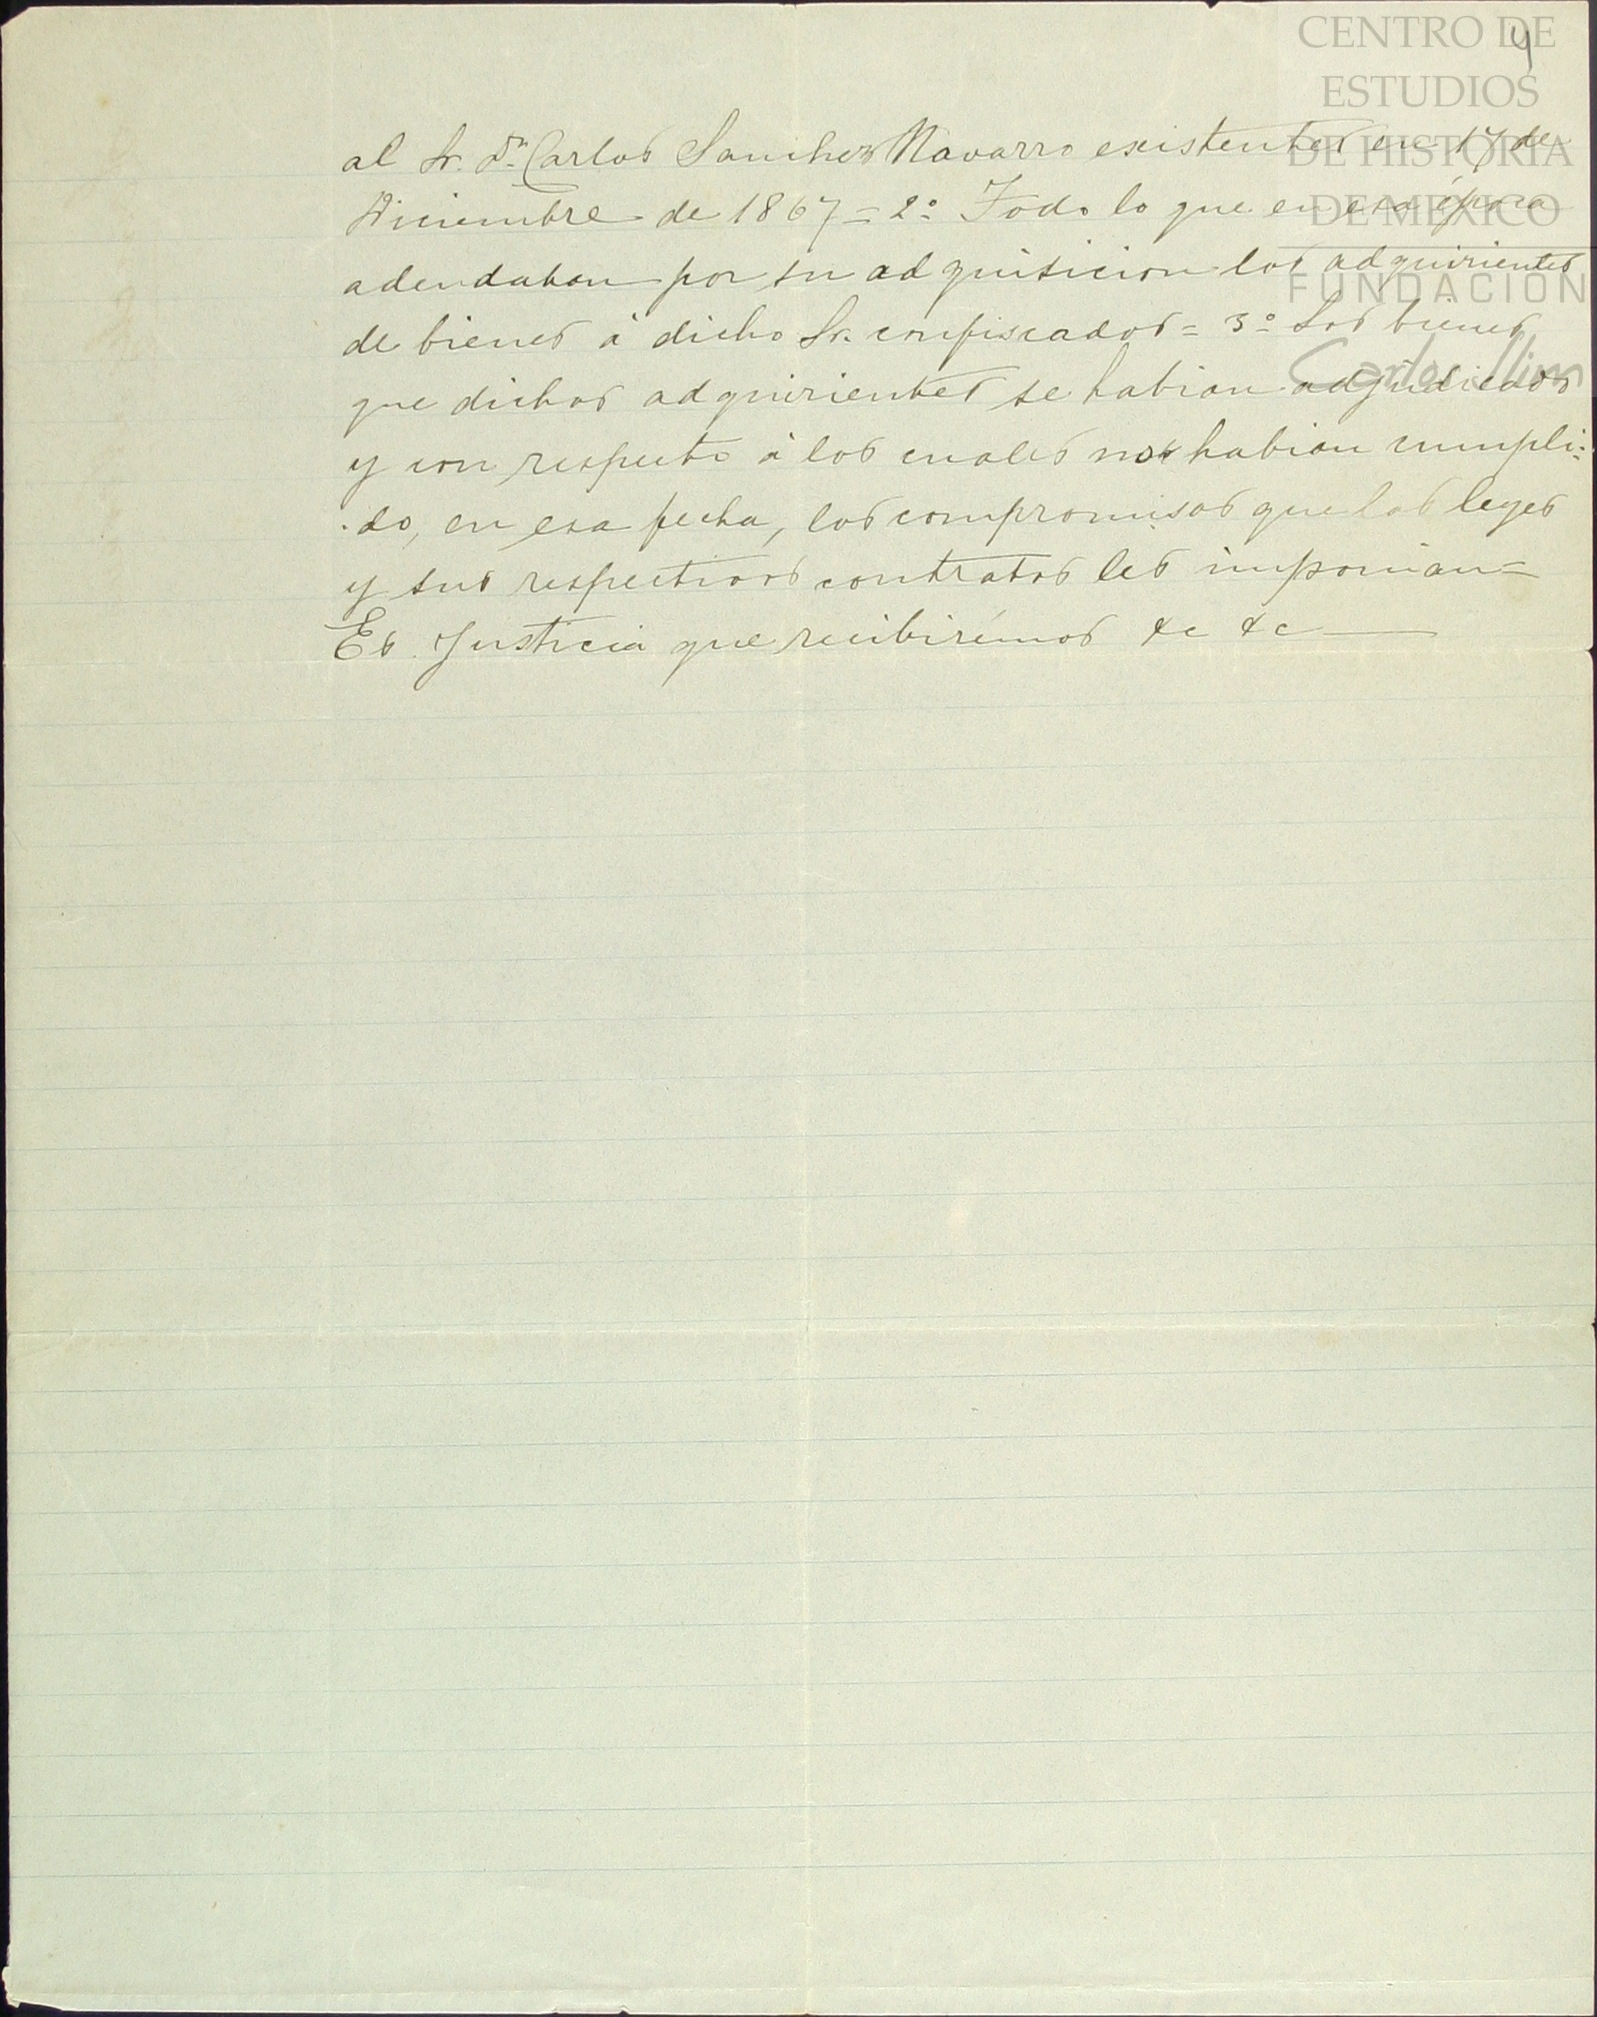 CENTRO DE
ESTUDIOS
DE HISTORIA
DE MÉXICO
FUNDACIÓN
Carlos Slim
4
al Sr. Dn. Carlos Sanchez Navarro existentes en 17 de
Diciembre de 1867 = 2º Todo lo que en esa época
adeudaban por su adquisicion los adquirientes
de bienes á dicho Sr. confiscados = 3º Los bienes
que dichos adquirientes se habian adjudicado
y con respecto á los cuales no habian cumpli-
do, en esa fecha, los compromisos que las leyes
y sus respectivos contratos les imponian =
Es Justicia que recibirémos &c &c